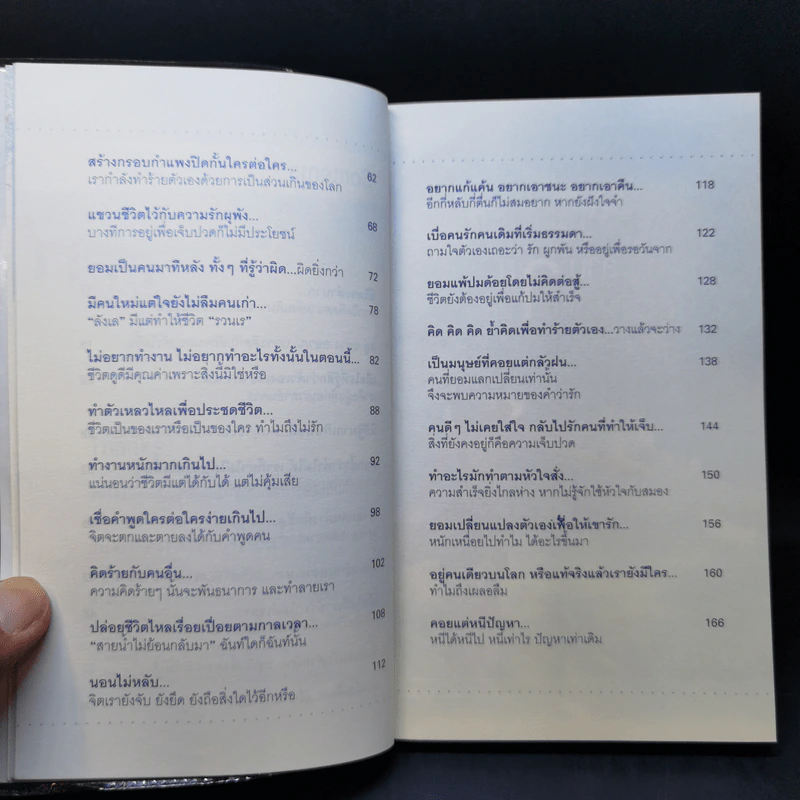 สร้างกรอบกำแพงปิดกั้นใครต่อใคร... 62
เรากำลังทำร้ายตัวเองด้วยการเป็นส่วนเกินของโลก
แขวนชีวิตไว้กับความรักผุพัง... 68
บางทีการอยู่เพื่อเจ็บปวดก็ไม่มีประโยชน์
ยอมเป็นคนมาทีหลัง ทั้งๆ ที่รู้ว่าผิด...ผิดยิ่งกว่า 72
มีคนใหม่แต่ใจยังไม่ลืมคนเก่า... 78
“ลังเล” มีแต่ทำให้ชีวิต “รวนเร”
ไม่อยากทำงาน ไม่อยากทำอะไรทั้งนั้นในตอนนี้... 82
ชีวิตดูดีมีคุณค่าเพราะสิ่งนี้มิใช่หรือ
ทำตัวเหลวไหลเพื่อประชดชีวิต... 88
ชีวิตเป็นของเราหรือเป็นของใคร ทำไมถึงไม่รัก
ทำงานหนักมากเกินไป... 92
แน่นอนว่าชีวิตมีแต่ได้กับได้ แต่ไม่คุ้มเสีย
เชื่อคำพูดใครต่อใครง่ายเกินไป... 98
จิตจะตกและตายลงได้กับคำพูดคน
คิดร้ายกับคนอื่น... 102
ความคิดร้ายๆ นั้นจะพันธนาการ และทำลายเรา
ปล่อยชีวิตไหลเรื่อยเปื่อยตามกาลเวลา... 108
“สายน้ำไม่ย้อนกลับมา” ฉันท์ใดก็ฉันท์นั้น
นอนไม่หลับ... 112
จิตเรายังจับ ยังยึด ยังถือสิ่งใดไว้อีกหรือ
อยากแก้แค้น อยากเอาชนะ อยากเอาคืน... 118
อีกกี่หลับกี่ตื่นก็ไม่สมอยาก หากยังฝังใจจำ
เบื่อคนรักคนเดิมที่เริ่มธรรมดา... 122
ถามใจตัวเองเถอะว่า รัก ผูกพัน หรืออยู่เพื่อรอวันจาก
ยอมแพ้ปมด้อยโดยไม่คิดต่อสู้... 128
ชีวิตยังต้องอยู่เพื่อแก้ปมให้สำเร็จ
คิด คิด คิด ย้ำคิดเพื่อทำร้ายตัวเอง...วางแล้วจะว่าง 132
เป็นมนุษย์ที่คอยแต่กลัวฝน... 138
คนที่ยอมแลกเปลี่ยนเท่านั้น
จึงจะพบความหมายของคำว่ารัก
คนดีๆ ไม่เคยใส่ใจ กลับไปรักคนที่ทำให้เจ็บ... 144
สิ่งที่ยังคงอยู่ก็คือความเจ็บปวด
ทำอะไรมักทำตามหัวใจสั่ง... 150
ความสำเร็จยิ่งไกลห่าง หากไม่รู้จักใช้หัวใจกับสมอง
ยอมเปลี่ยนแปลงตัวเองเพื่อให้เขารัก... 156
หนักเหนื่อยไปทำไม ได้อะไรขึ้นมา
อยู่คนเดียวบนโลก หรือแท้จริงแล้วเรายังมีใคร... 160
ทำไมถึงเผลอลืม
คอยแต่หนีปัญหา... 166
หนีได้หนีไป หนีเท่าไร ปัญหาเท่าเดิม